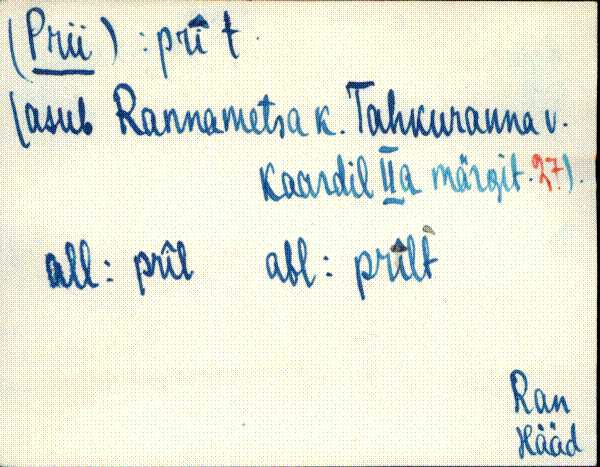 (Prii) : prî t.
(asub Rannametsa k. Tahkuranna v.
Kaardil IIa märgit. 27).
all: prîl abl: prîlt
Ran
Hääd